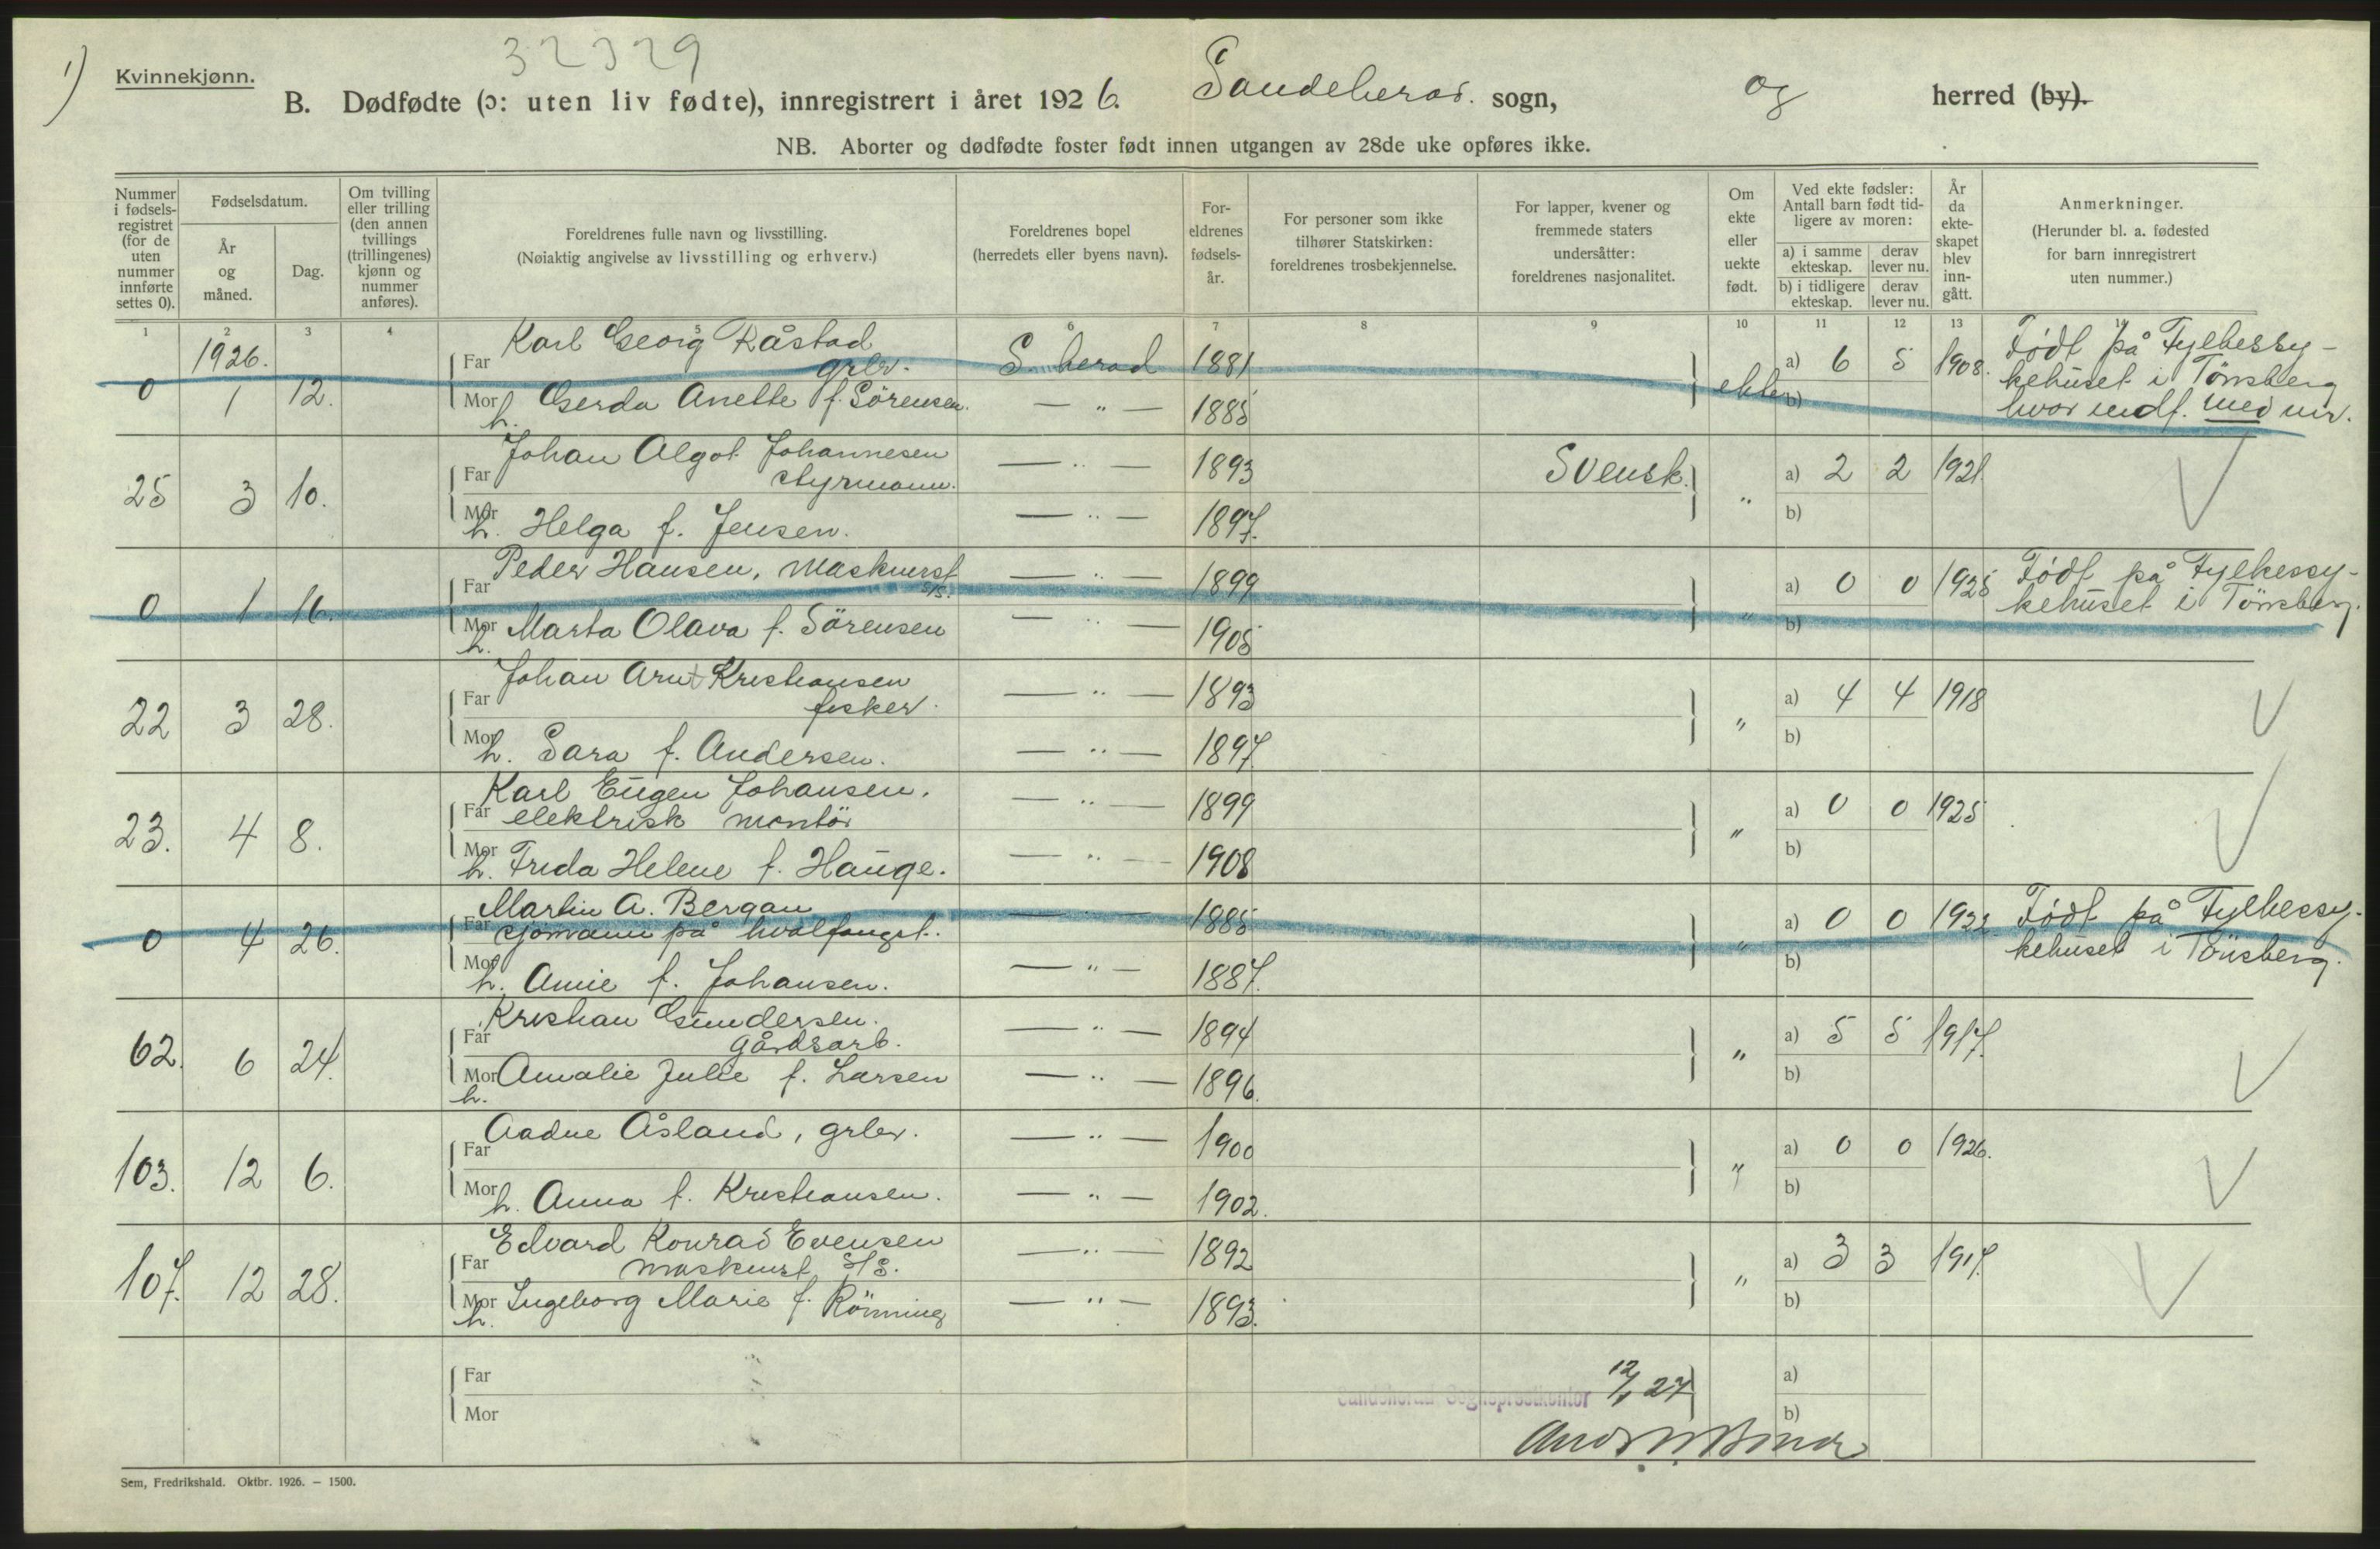 1)
32329
Kvinnekjønn.
B. Dødfødte (ɔ: uten liv fødte), innregistrert i året 1926. Sandeherad. sogn, og herred (by).
NB. Aborter og dødfødte foster født innen utgangen av 28de uke opføres ikke.
Nummer i fødsels-registret (for de uten nummer innførte settes 0).
Fødselsdatum.
År og måned.
Dag.
Om tvilling eller trilling (den annen tvillings (trillingenes) kjønn og nummer anføres).
Foreldrenes fulle navn og livsstilling.
(Nøiaktig angivelse av livsstilling og erhverv.)
Foreldrenes bopel
(herredets eller byens navn).
For-eldrenes fødsels-år.
For personer som ikke tilhører Statskirken: foreldrenes trosbekjennelse.
For lapper, kvener og fremmede staters undersåtter: foreldrenes nasjonalitet.
Om ekte eller uekte født.
Ved ekte fødsler: Antall barn født tid-ligere av moren:
a) i samme ekteskap. derav lever nu.
b) i tidligere ekteskap. derav lever nu.
År da ekte-skapet blev inn-gått.
Anmerkninger.
(Herunder bl. a. fødested for barn innregistrert uten nummer.)
1 2 3 4 5 6 7 8 9 10 11 12 13 14
1926.
0 1 12. Far Karl Georg Råstad grbr. S. herad 1881 ekte a) 6 5 1908. Født på Fylkessy-
kehuset i Tönsberg
hvor indf. med nr.
Mor h. Gerda Anette f. Sörensen. — " — 1885 b)
25 3 10. Far Johan Algot Johannesen styrmann. — " — 1893 Svensk. " a) 2 2 1921.
Mor h. Helga f. Jensen. — " — 1897. b)
0 1 16. Far Peder Hansen, maskinist s/s. — " — 1899 " a) 0 0 1925 Født på Fylkessy-
kehuset i Tönsberg.
Mor h. Marta Olava f. Sörensen — " — 1905 b)
22 3 28. Far Johan Arnt Kristiansen fisker. — " — 1893 " a) 4 4 1918
Mor h. Sara f. Andersen. — " — 1897. b)
23. 4 8. Far Karl Eugen Johansen. elektrisk montör — " — 1899 " a) 0 0 1925
Mor h. Frida Helene f. Hauge. — " — 1908 b)
0 4 26. Far Martin A. Bergan sjömann på hvalfangst. — " — 1885 " a) 0 0 1922 Født på Fylkessy-
kehuset i Tönsberg.
Mor h. Amie f. Johansen. — " — 1887. b)
62. 6 24. Far Kristian Gundersen. gårdsarb. — " — 1894 " a) 5 5 1917.
Mor h. Amalie Julie f. Larsen — " — 1896. b)
103. 12 6. Far Aadne Åsland, grbr. — " — 1900 " a) 0 0 1926.
Mor h. Anna f. Kristiansen. — " — 1902. b)
107. 12 28. Far Edvard Konrad Evensen maskinist s/s. — " — 1892 " a) 3 3 1917.
Mor h. Ingeborg Marie f. Rönning — " — 1893. b)
Far a)
Mor b)
Sandeherad Sogneprestkontor 12/1 27
Sem, Fredrikshald. Oktbr. 1926. — 1500.